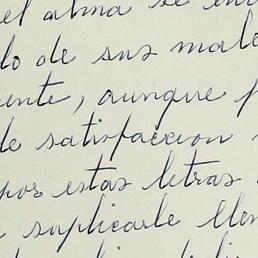 el alma se
lo de sus male
ente, aunque
de satisfaccion
por estas letras
suplicarle llen